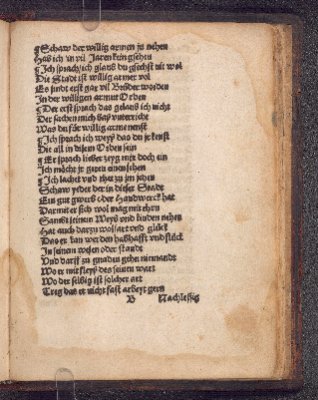 Schaw der willig armen zů nehen
Hab ich in vil Jaren kein gsehen
Ich sprach/ich glaub du gsechst nit wol
Die Stadt ist willig armer vol
Es sindt erst gar vil Brůder worden
In der willigen armut Orden
Der erst sprach das gelaub ich nicht
Der sachen mich bas vnterricht
Was du für willig arme nenst
Ich sprach ich weyß das du sie kenst
Die all in disem Orden sein
Er sprach lieber zeyg mir doch ein
Ich möcht je geren einen sehen
Ich lachet vnd thet zu jm jehen
Schaw yeder der in dieser Stadt
Ein gut gwerb oder Handwerck hat
Darmit er sich wol mag mit ehrn
Sampt seinem Weyb vnd kinden nehren
Hat auch darzu wolfart vnd glück
Das er kan werden habhafft vnd flück
In seinem wesen oder stande
Vnd darff zu gnaden gehn niemandt
Wo er mit fleyß des seinen wart
Wo der selbig ist solcher art
Treg das er nicht fast arbeyt gern
B Nachlessig